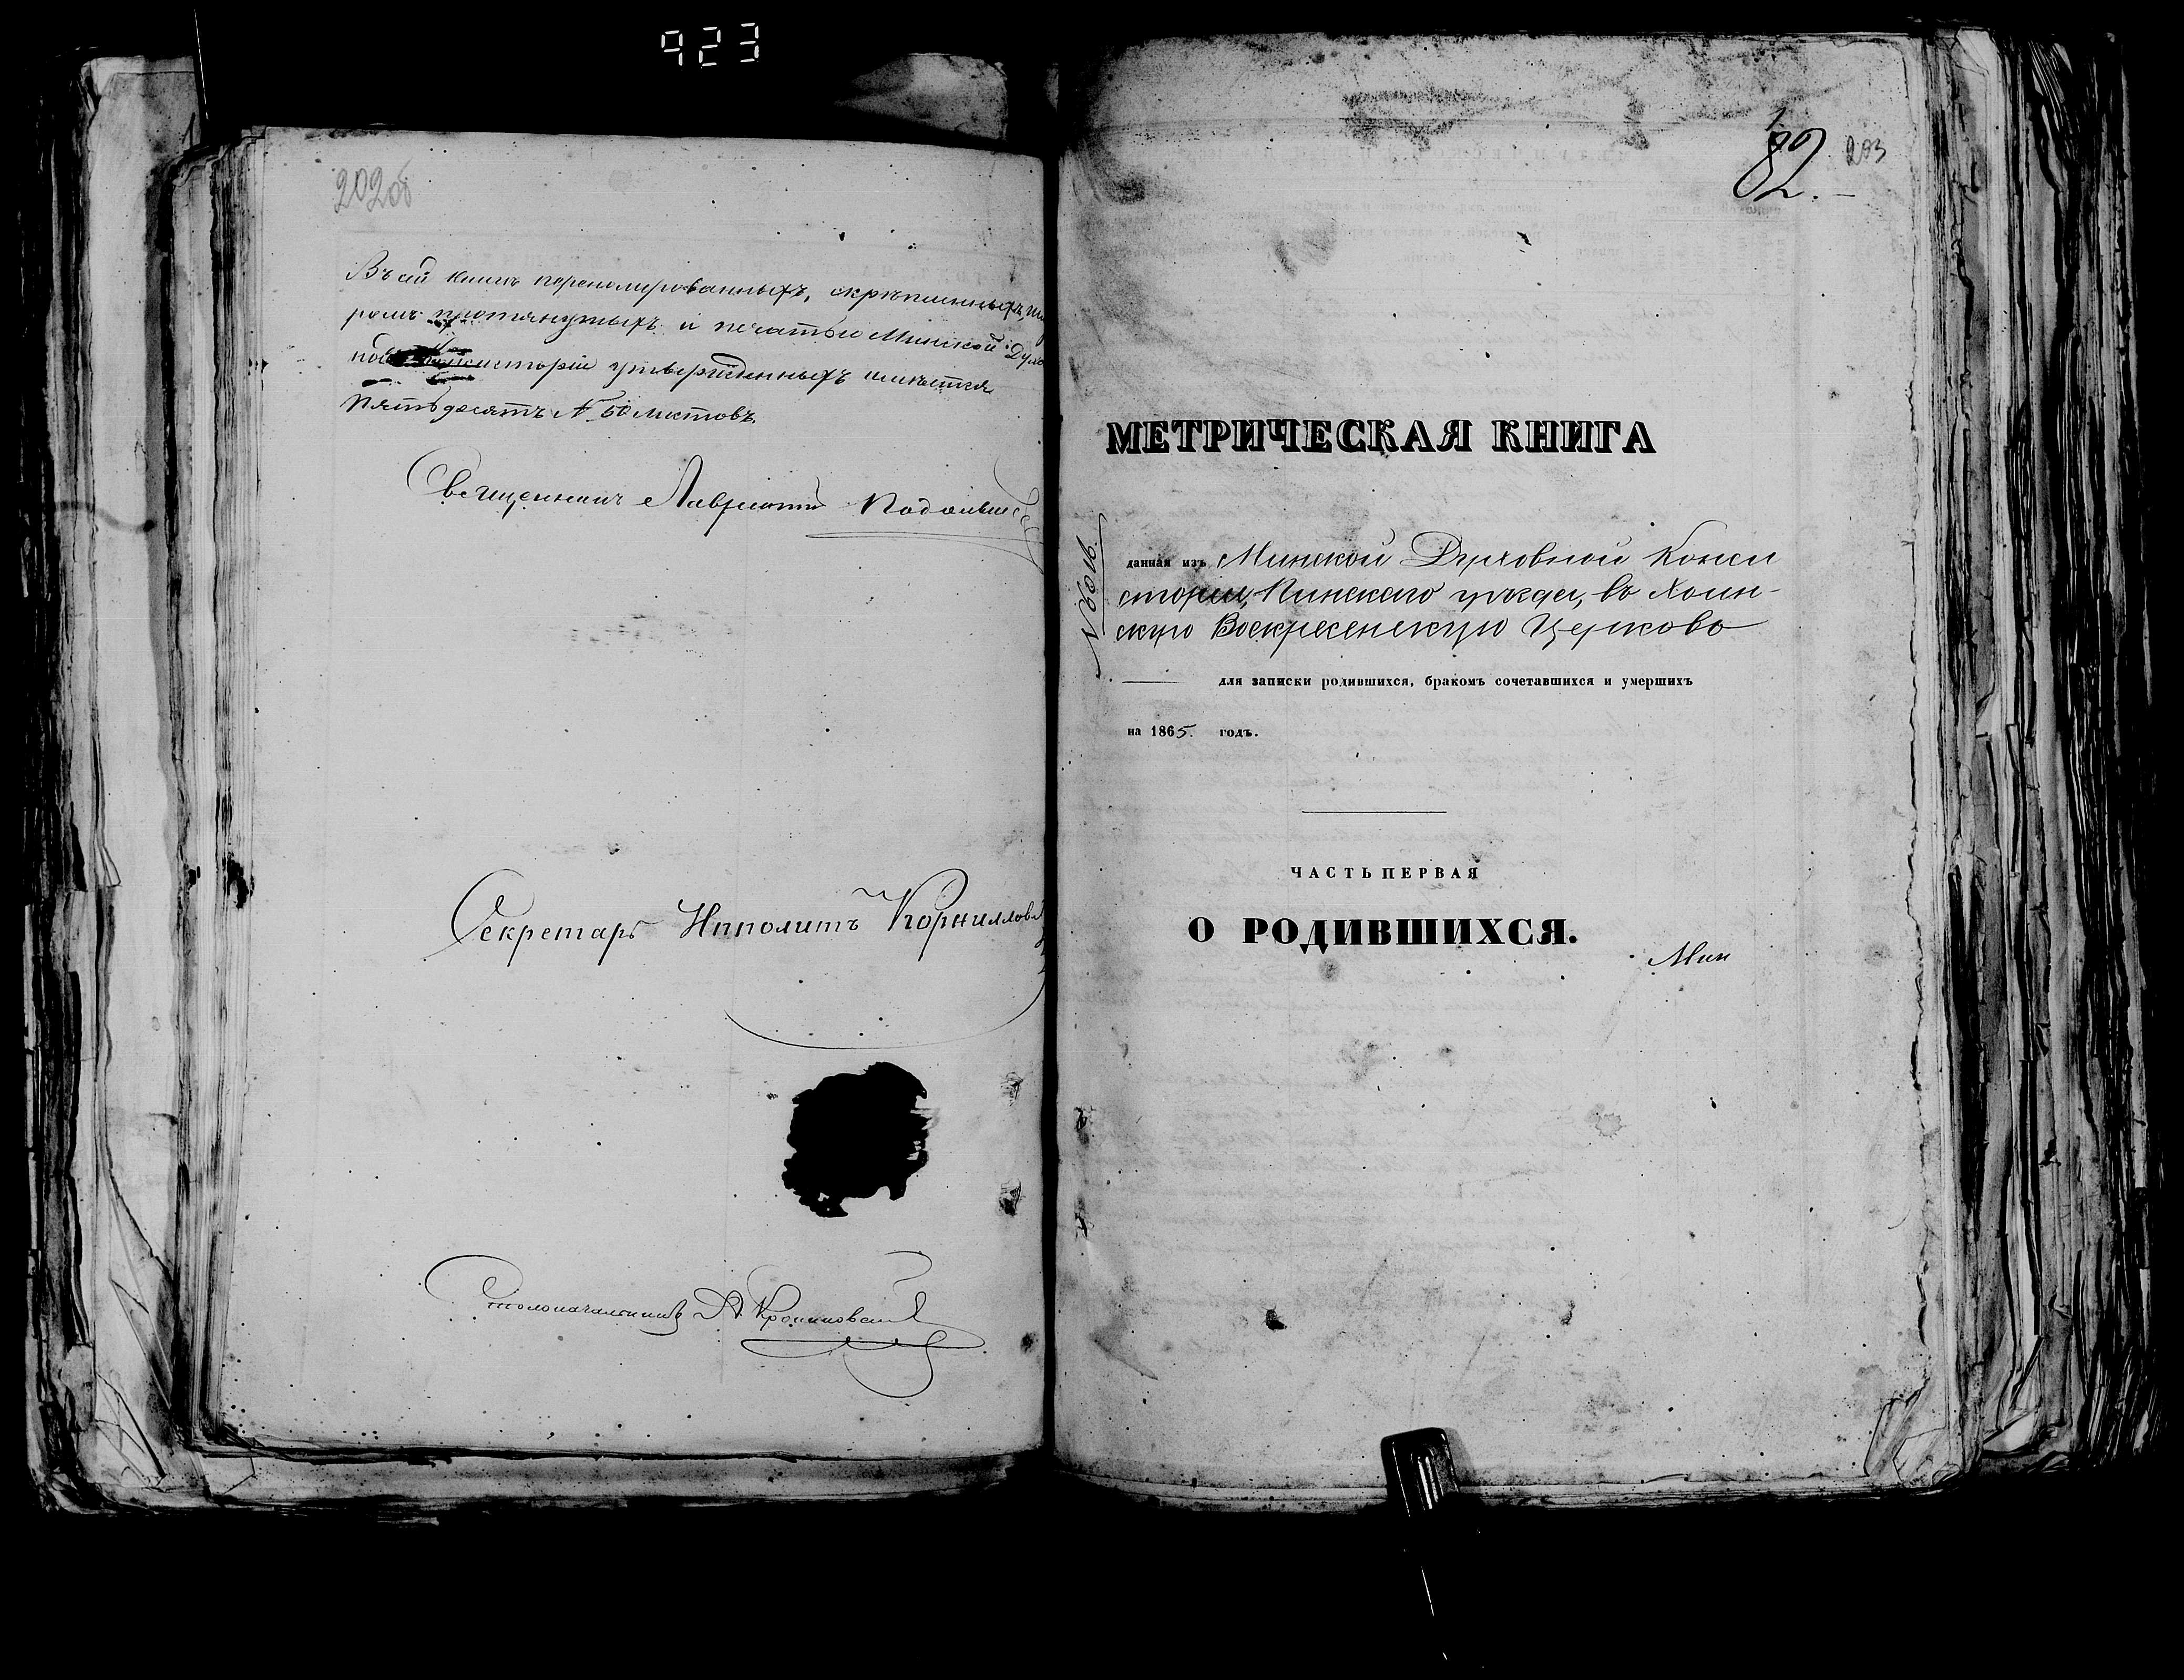 923
202об
Въ сей книгѣ переномированныхъ, скрѣпленныхъ, шну
ромъ протянутыхъ и печатью Минской Духо
ной Консисторіи утвержденныхъ имѣется
пятьдесятъ № 50 листовъ.
Священникъ Лаврентій
Секретарь Ипполитъ Корниллов
Столоначальникъ
82.
203
МЕТРИЧЕСКАЯ КНИГА
данная изъ Минской Духовной Конси
сторіи, Пинскаго уѣзда, въ Хоин-
скую Воскресенскую Церковь
для записки родившихся, бракомъ сочетавшихся и умершихъ
на 1865. годъ.
ЧАСТЬ ПЕРВАЯ
О РОДИВШИХСЯ.
Мин